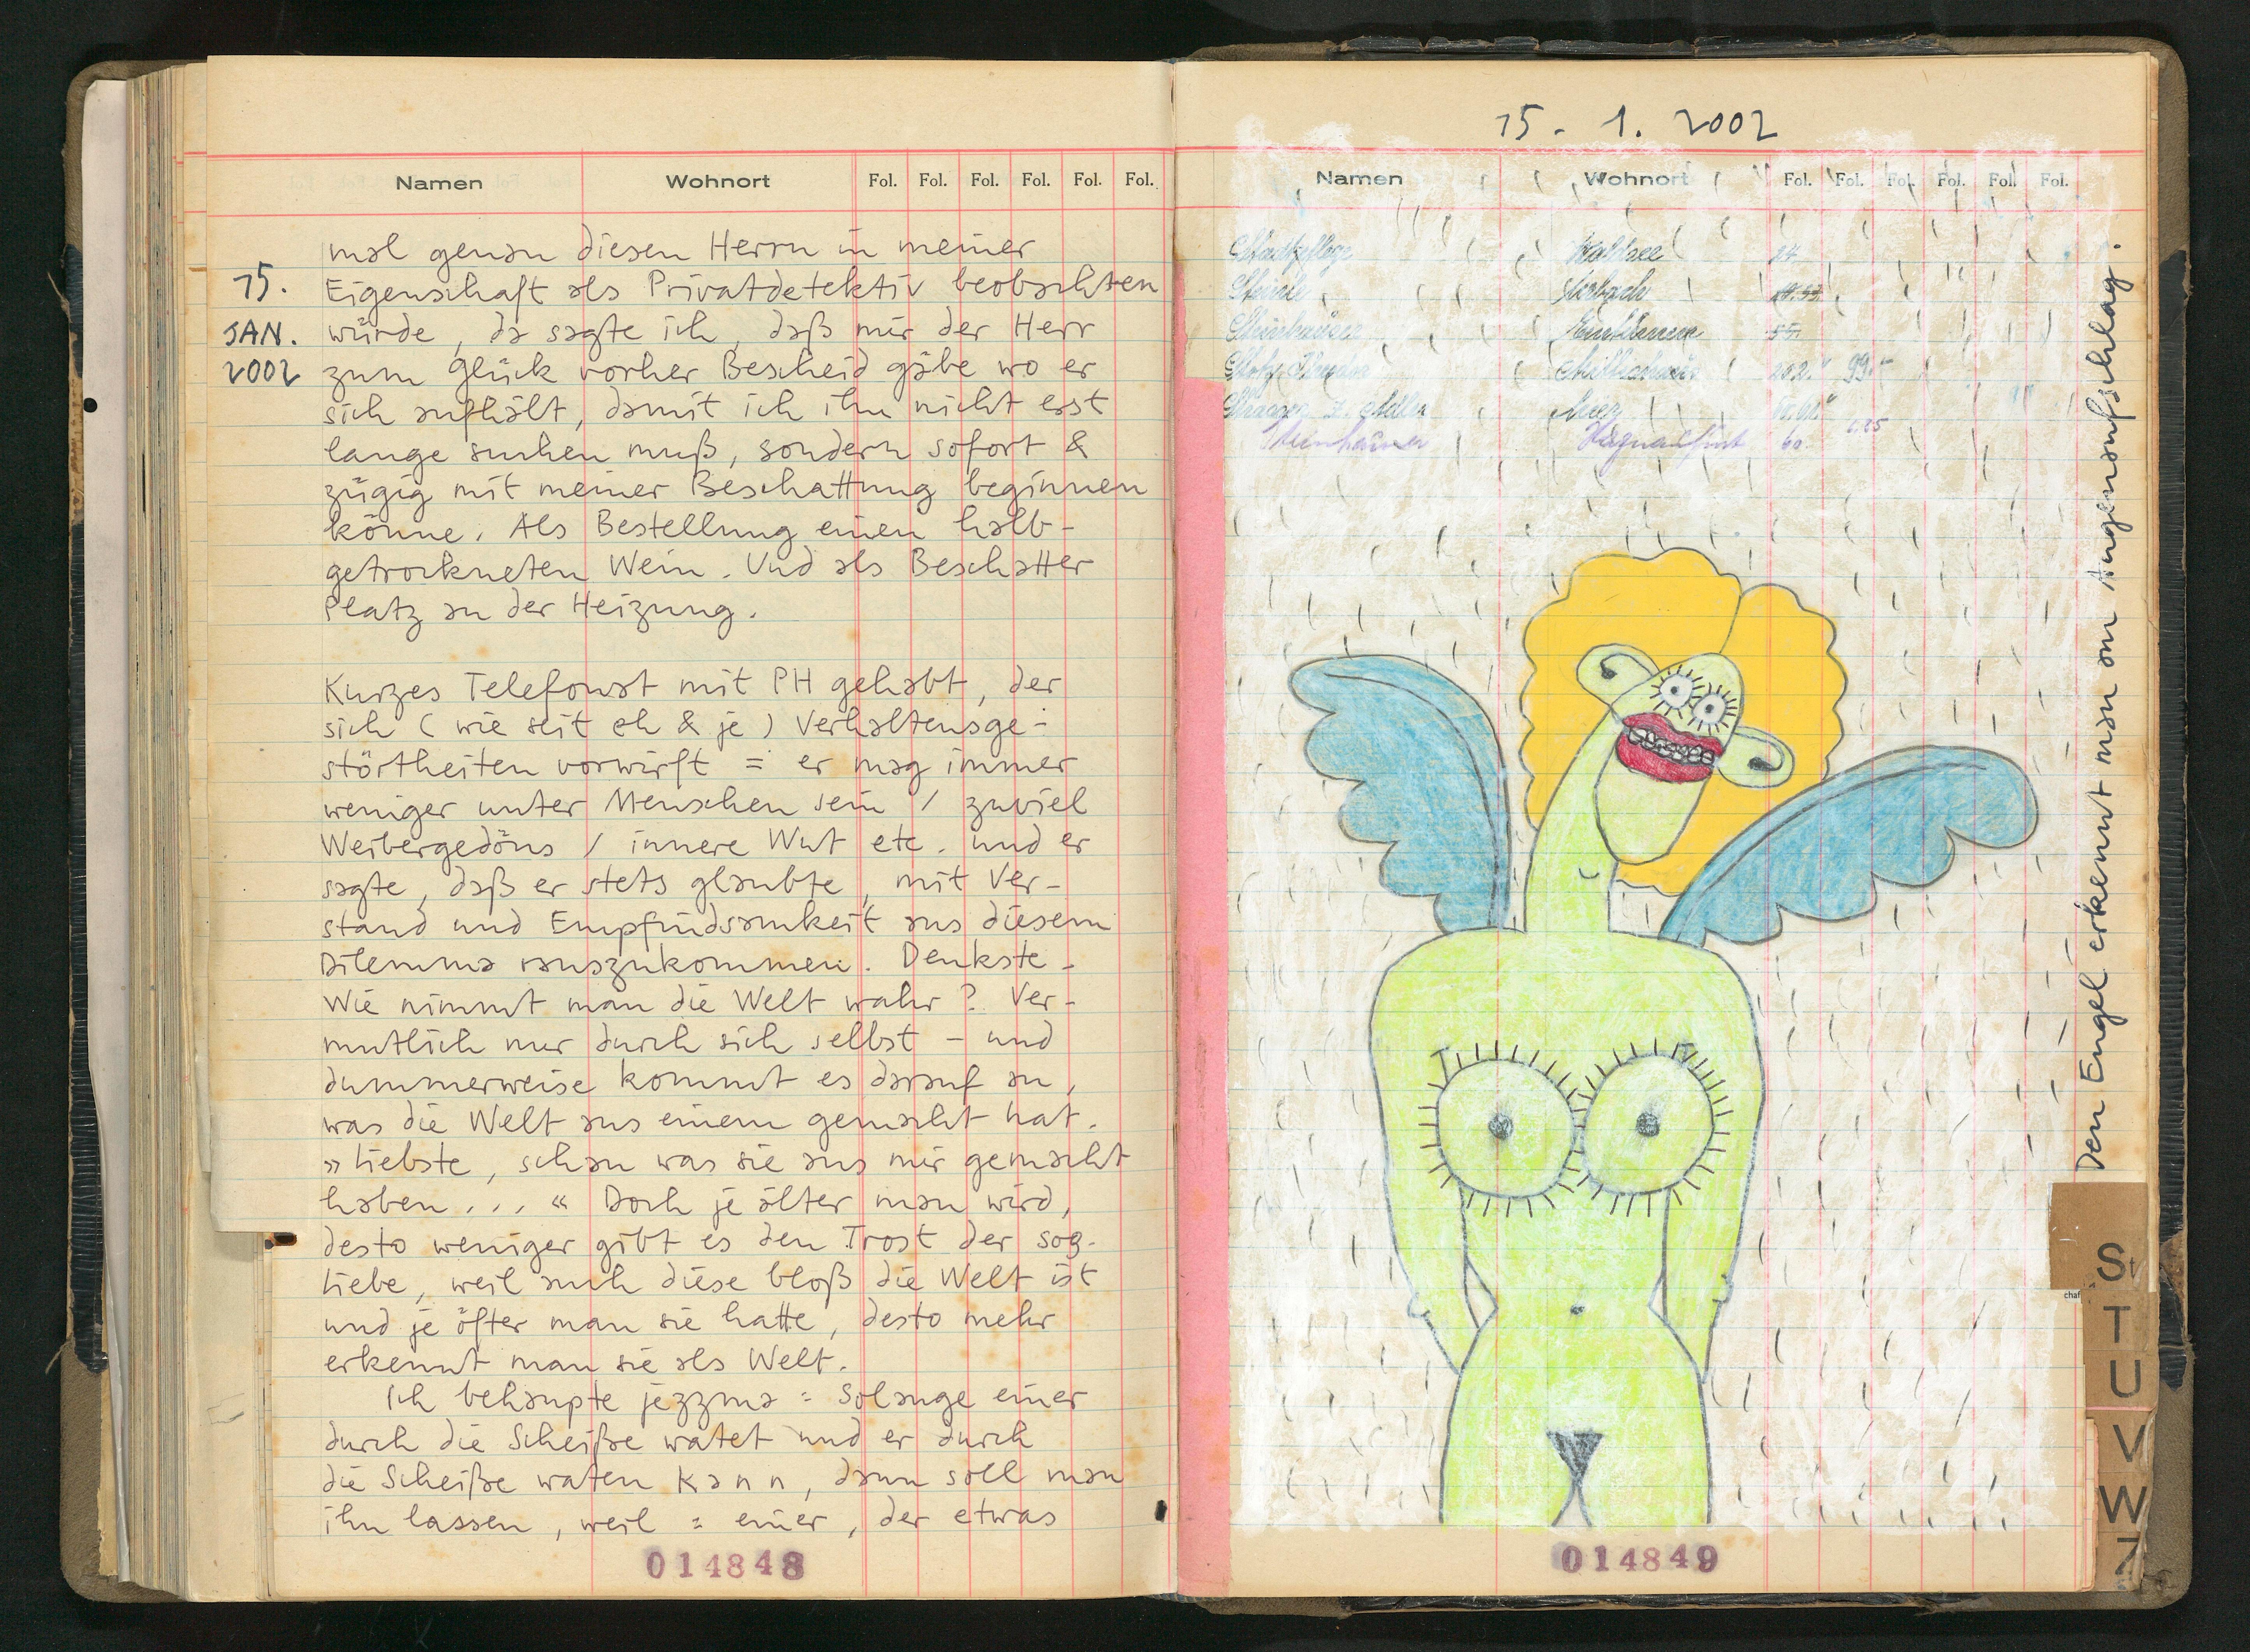 Namen Wohnort Fol. Fol. Fol. Fol. Fol. Fol.
15.
JAN.
2002
mal genau diesen Herrn in meiner
Eigenschaft als Privatdetektiv beobachten
würde, da sagte ich, daß mir der Herr
zum Glück vorher Bescheid gäbe wo er
sich aufhält, damit ich ihn nicht erst
lange suchen muß, sondern sofort &
zügig mit meiner Beschattung beginnen
könne. Als Bestellung einen halb-
getrockneten Wein. Und als Beschatter
Platz an der Heizung.
Kurzes Telefonat mit PH gehabt, der
sich (wie seit eh & je) Verhaltensge-
störtheiten vorwirft = er mag immer
weniger unter Menschen sein / zuviel
Weibergedöns / innere Wut etc. und er
sagte, daß er stets glaubte, mit Ver-
stand und Empfindsamkeit aus diesem
Dilemma rauszukommen. Denkste.
Wie nimmt man die Welt wahr? Ver-
mutlich nur durch sich selbst – und
dummerweise kommt es darauf an,
was die Welt aus einem gemacht hat.
»Liebste, schau was sie aus mir gemacht
haben...« Doch je älter man wird,
desto weniger gibt es den Trost der sog.
Liebe, weil auch diese bloß die Welt ist
und je öfter man sie hatte, desto mehr
erkennt man sie als Welt.
Ich behaupte jezzma = Solange einer
durch die Scheiße watet und er durch
die Scheiße waten kann, dann soll man
ihn lassen, weil = einer, der etwas
014848
15. 1. 2002
Namen Wohnort Fol. Fol. Fol. Fol. Fol. Fol.
Stadtpflege Waldsee 24
55.
202. 99.
60.
Den Engel erkennt man am Augenaufschlag.
St
chaf
T
U
V
W
Z
014849